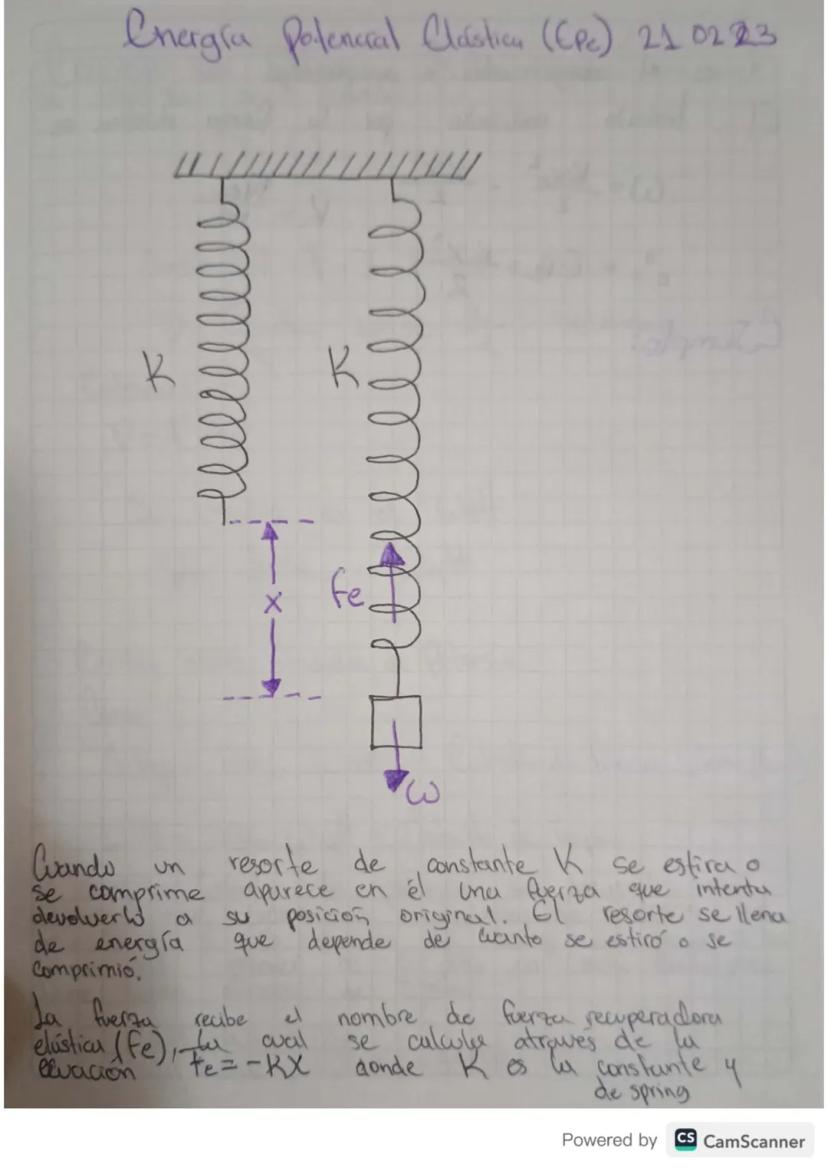 Energía Potencial Elástica (Epe) 21 02 23
K
K
x
fe
ω
Cuando un resorte de constante K se estira o
se comprime aparece en él una fuerza que intenta
devolverlo a su posición original. El resorte se llena
de energía que depende de cuanto se estiró o se
comprimió.
La fuerza recibe el nombre de fuerza recuperadora
elástica (fe), la cual se calcula atraves de la
ecuación fe = -KX donde K es la constante y
de spring
Powered by CS CamScanner